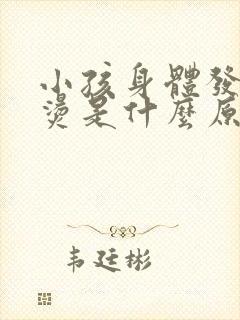 小孩身體發
燙是什麼原
韦廷彬